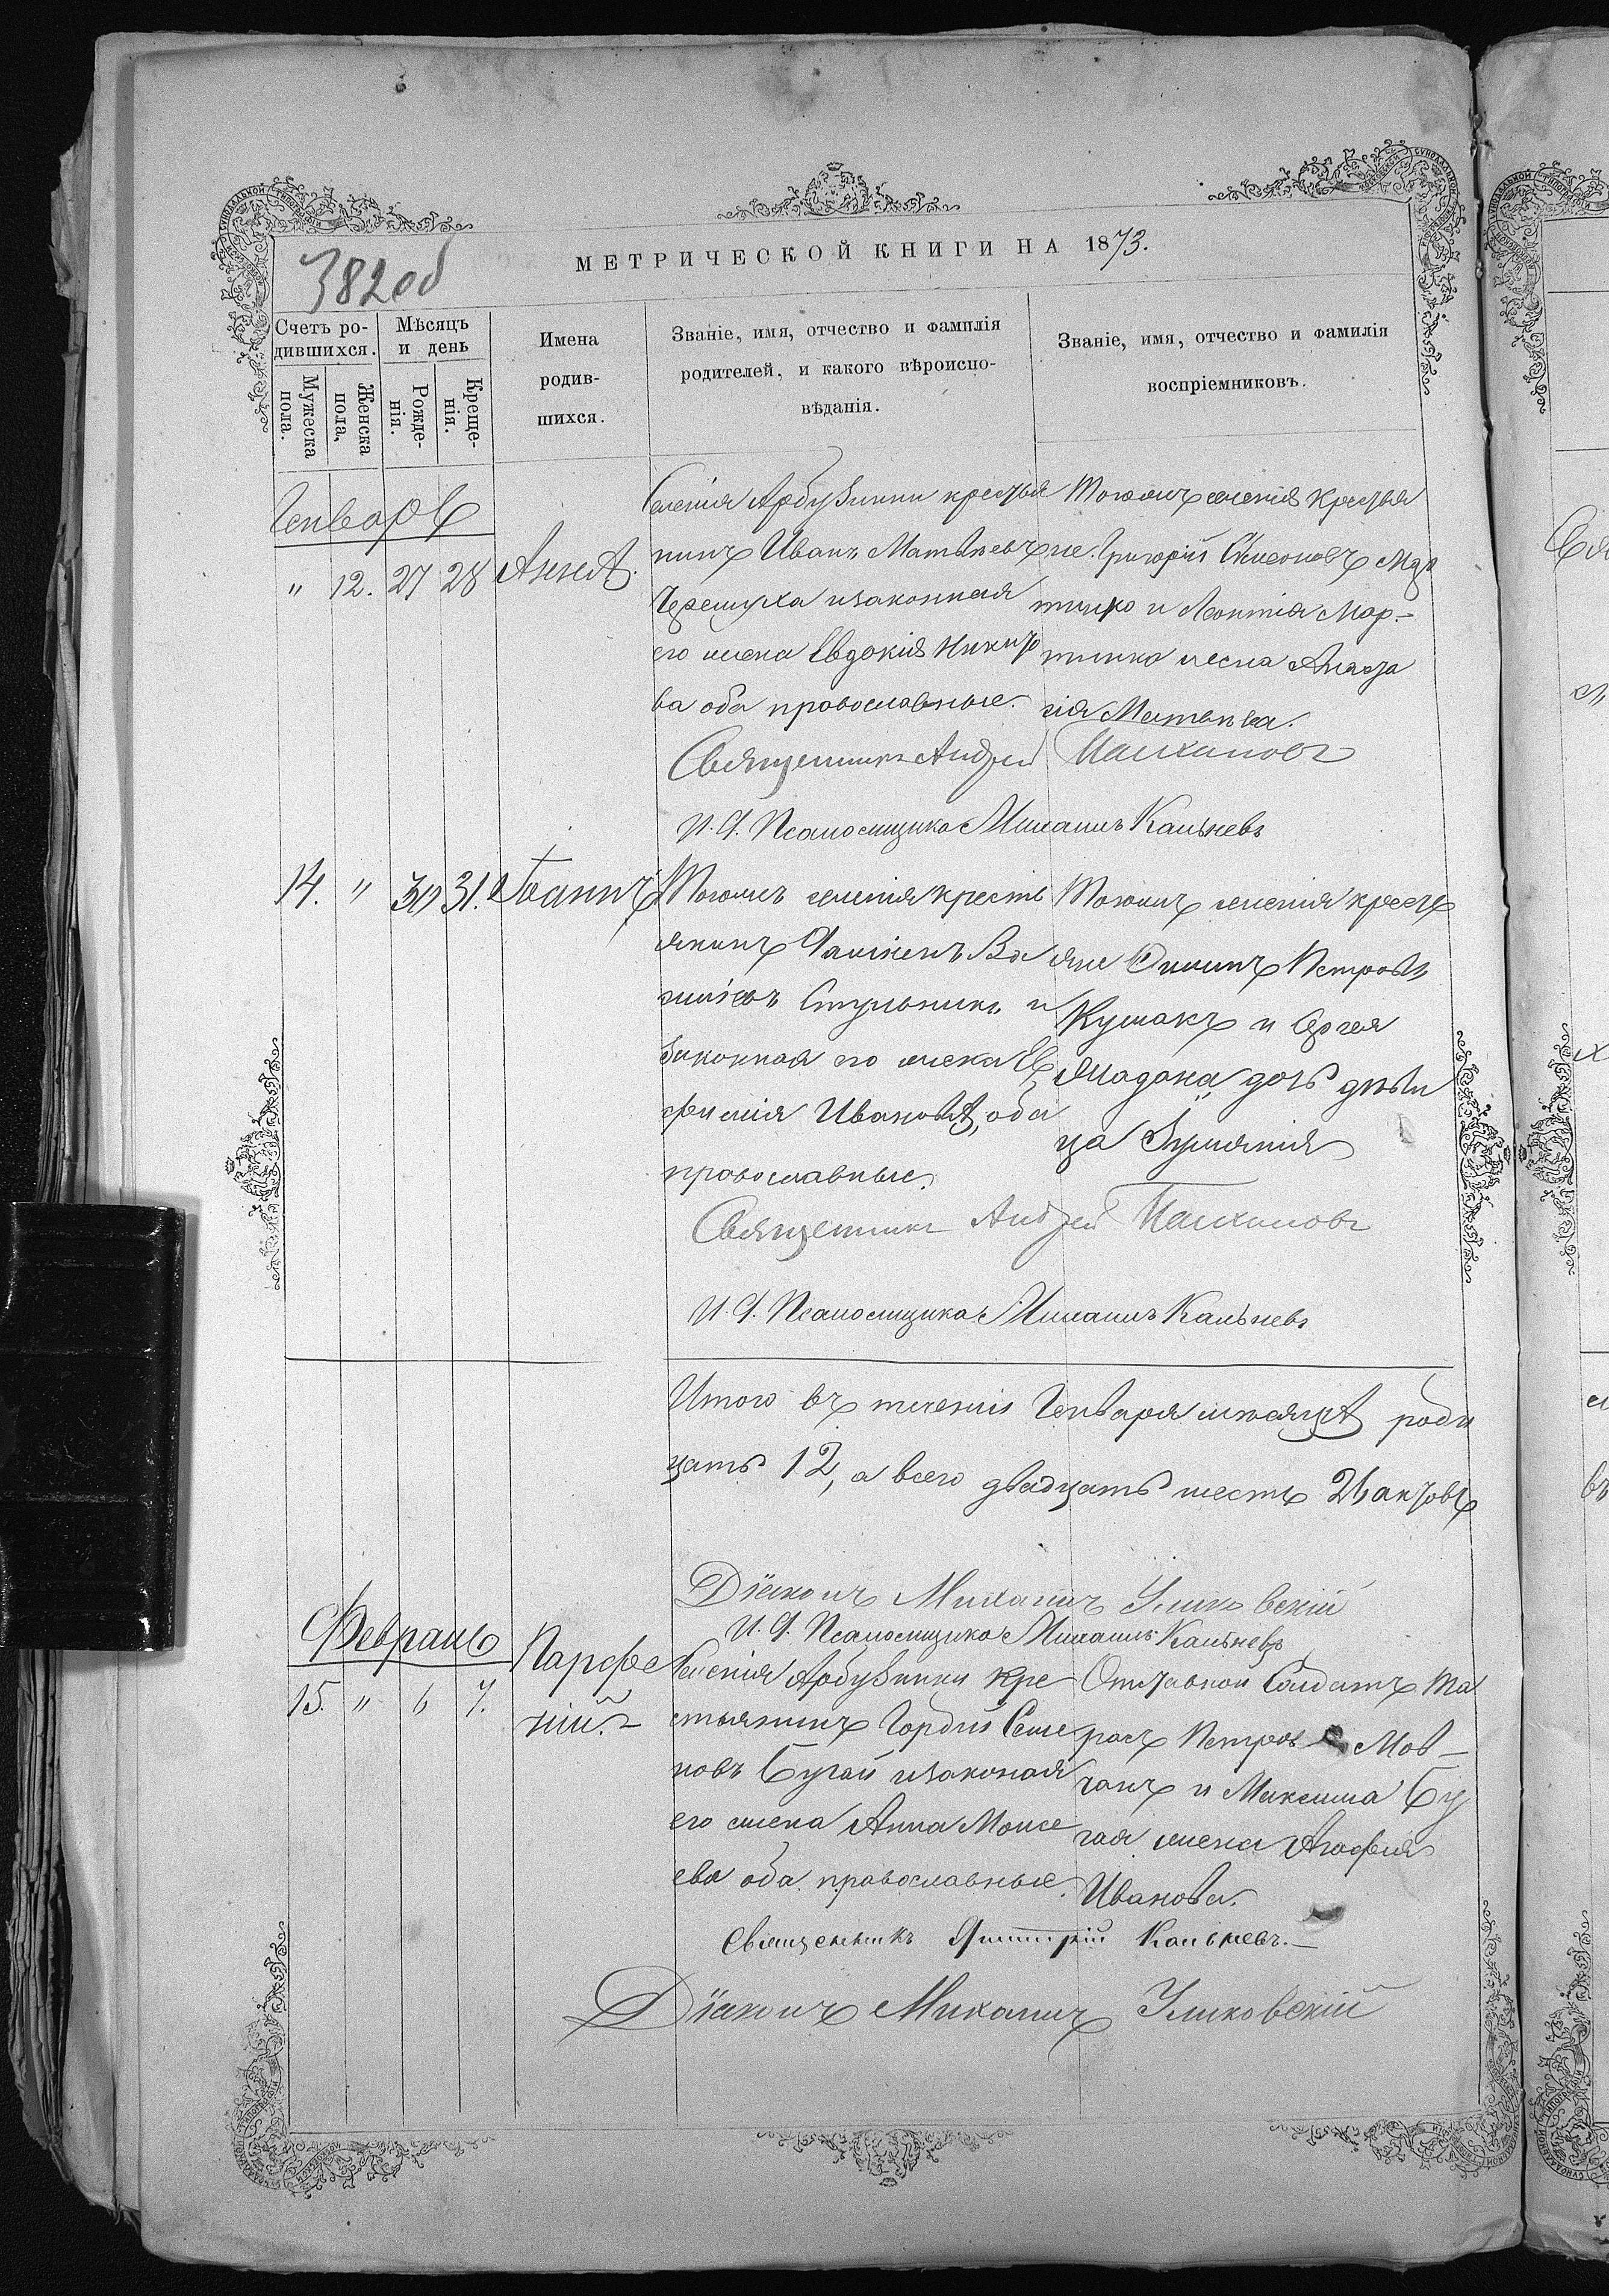 МЕТРИЧЕСКОЙ КНИГИ НА 1873.
382 об
Счетъ ро-
дившихся.
Мужеска пола.
Женска пола,
Мѣсяцъ
и день
Рожде-
нія.
Креще-
нія.
Имена
родив-
шихся.
Званіе, имя, отчество и фамилія
родителей, и какого вѣроиспо-
вѣданія.
Званіе, имя, отчество и фамилія
воспріемниковъ.
Генварь
" 12. 27 28 Анна.
Селенія Арбузинки крестья
нинъ Иванъ Матвѣевъ
Черемуха изаконная
его жена Евдокія
ва оба православные.
Тогожъ селенія крестья
не Григорій Мар
тинко и Леонтія Мар-
тинка жена Анаста
сія Матвѣева.
Священникъ Андрей
И. Д. Псаломщика Михаилъ Кальневъ
14. " 30 31. Іоаннъ
Тогожъ селенія кресть
янинъ Ва
силіевъ Стульникъ и
законная его жена Ев
фимія Иванова, оба
православные.
Тогожъ селенія кресть
яне Петровъ
Кушакъ и Сергея
дочь дѣви
ца
Священникъ Андрей
И. Д. Псаломщика Михаилъ Кальневъ
Итого въ теченіи Генваря мѣсяца роди
цать 12, а всего двадцать шесть 26 актовъ
Діаконъ Михаилъ
И. Д. Псаломщика Михаилъ Кальневъ
Февраль
15. " 6 7. Парфе
ній.-
Селенія Арбузинки Кре
стьянинъ Гордій Семе
новъ Бугай изаконая
его жена Анна Моисе
ева оба православные.
Отставной Солдатъ Та
расъ Петровъ Мов-
чанъ и Максима Бу
гая жена Агафія
Иванова.
Священникъ Димитрій Кальневъ.-
Діаконъ Михаилъ